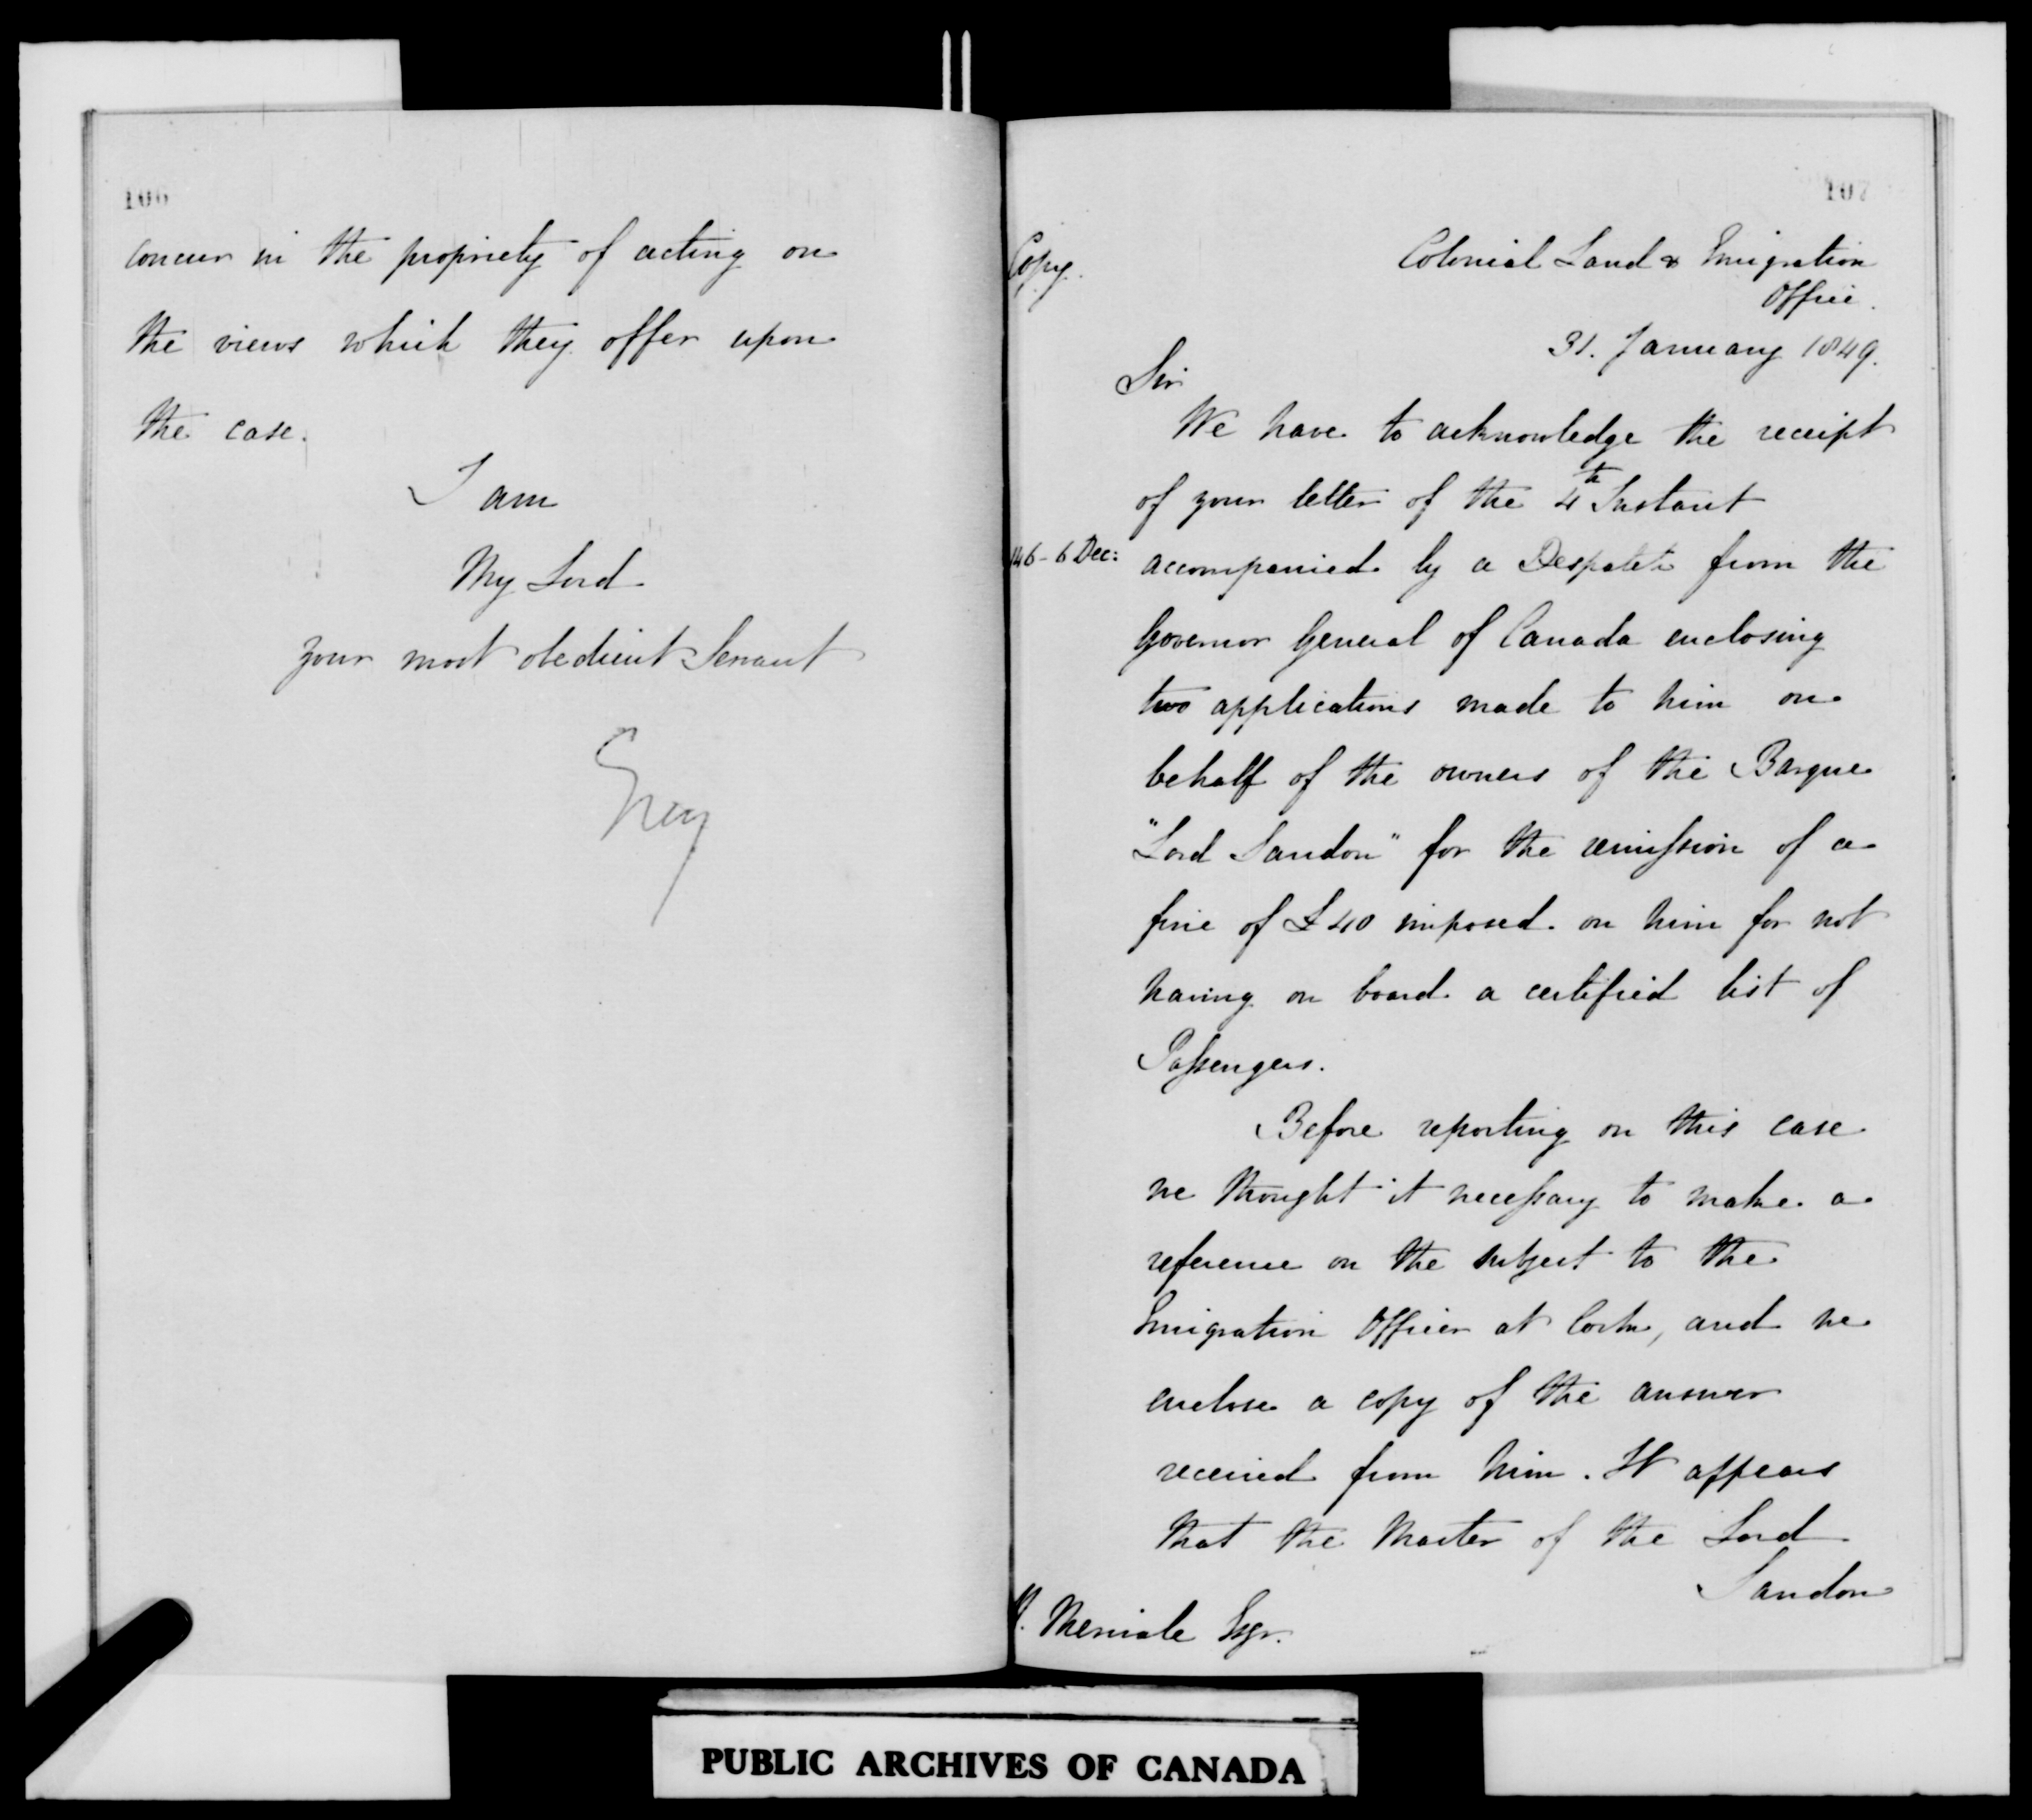 106
concur in the propriety of acting on
the views which they offer upon
the case.
I am
My Lord
your most obedient Servant
Grey
107
Copy.
Colonial Land & Emigration
Office.
31. January 1849.
Sir
We have to acknowledge the receipt
of your letter of the 4th Instant
146 - 6 Dec:
accompanied by a Despatch from the
Governor General of Canada enclosing
two applications made to him on
behalf of the owners of the Barque
"Lord Sandon" for the remission of a
fine of £40 imposed on him for not
having on board a certified list of
Passengers.
Before reporting on this case
we thought it necessary to make a
reference on the subject to the
Emigration Officer at Cork, and we
enclose a copy of the answer
received from him. It appears
that the Master of the Lord
Sandon
H. Merivale Esqr.
PUBLIC ARCHIVES OF CANADA